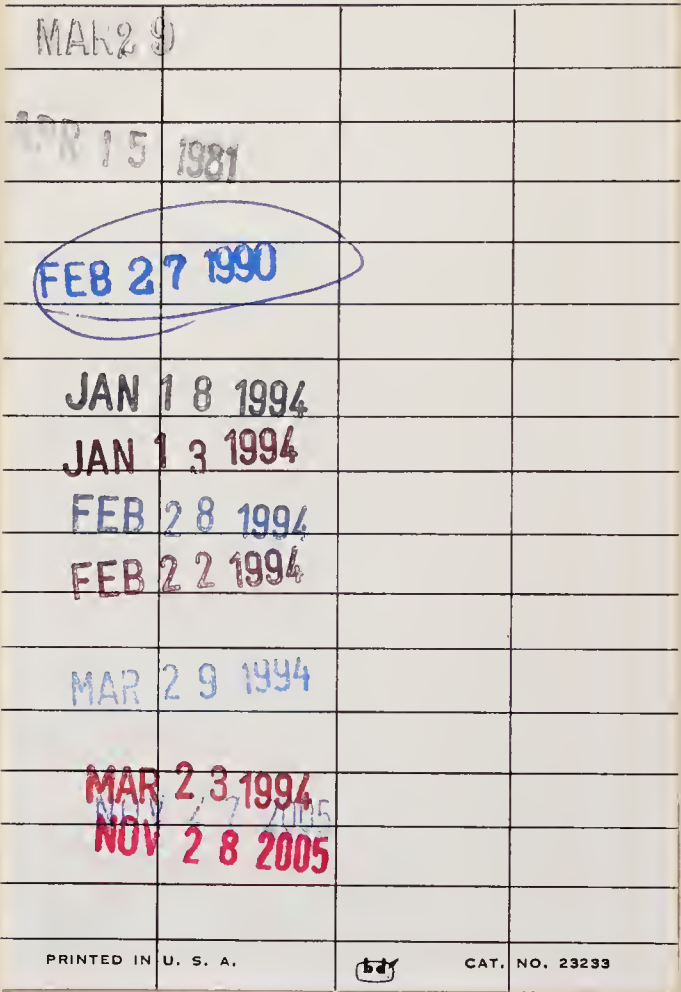 MAR 29
APR 15 1981
FEB 27 1990
JAN 18 1994
JAN 13 1994
FEB 28 1994
FEB 22 1994
MAR 29 1994
MAR 23 1994
NOV 27 2005
NOV 28 2005
PRINTED IN U. S. A. bd CAT. NO. 23233